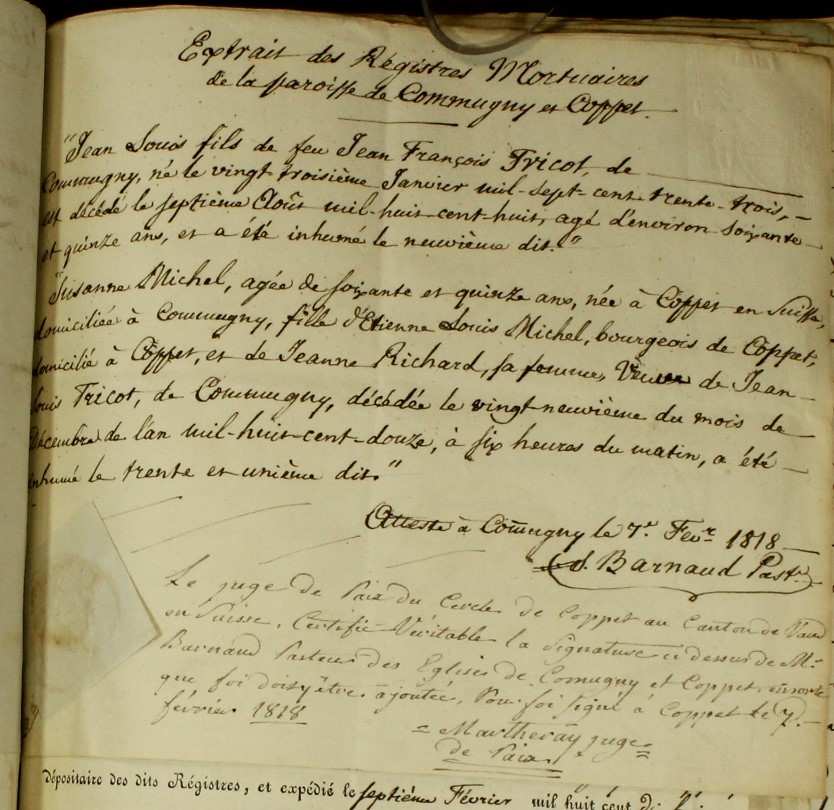 Extrait des Régistres Mortuaires
de la paroisse de Commugny et Coppet.
"Jean Louis fils de feu Jean François Tricot, de
Commugny, né le vingt troisième Janvier mil-sept-cent-trente-trois,
est décédé le septième Août mil-huit-cent-huit, agé d'environ soixante
et quinze ans, et a été inhumé le neuvième dit."
"Susanne Michel, agée de soixante et quinze ans, née à Coppet en Suisse,
domiciliée à Commugny, fille d'Etienne Louis Michel, bourgeois de Coppet,
domicilié à Coppet, et de Jeanne Richard, sa femme, Veuve de Jean
Louis Tricot, de Commugny, décédée le vingt-neuvième du mois de
Décembre de l'an mil-huit-cent-douze, à six heures du matin, a été
inhumé le trente et unième dit."
Atteste à Com̄ugny le 7.e Fevr. 1818
J. Barnaud Pastr.
Le juge de Paix du Cercle de Coppet au Canton de Vaud
en Suisse, Certifie Véritable la Signature ci dessus de Mr.
Barnaud Pasteur des Eglises de Comugny et Coppet, ensorte
que foi doit y être ajoutée. Pour foi signé à Coppet le 7.
février 1818
Martheray juge
de Paix.
dépositaire des dits Régistres, et expédié le septième Février mil huit cent